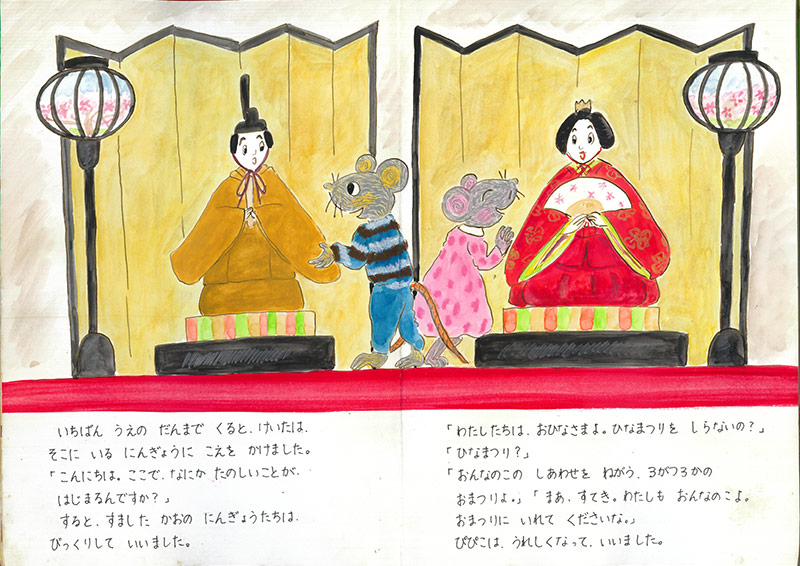 いちばん うえの だんまで くると、けいたは、
そこに いる にんぎょうに こえを かけました。
「こんにちは。ここで、なにか たのしいことが、
はじまるんですか?」
すると、すました かおの にんぎょうたちは、
びっくりして いいました。
「わたしたちは、おひなさまよ。ひなまつりを しらないの?」
「ひなまつり?」
「おんなのこの しあわせを ねがう、3がつ3かの
おまつりよ。」「まあ、すてき。わたしも おんなのこよ。
おまつりに いれて くださいな。」
ぴぴこは、うれしくなって、いいました。